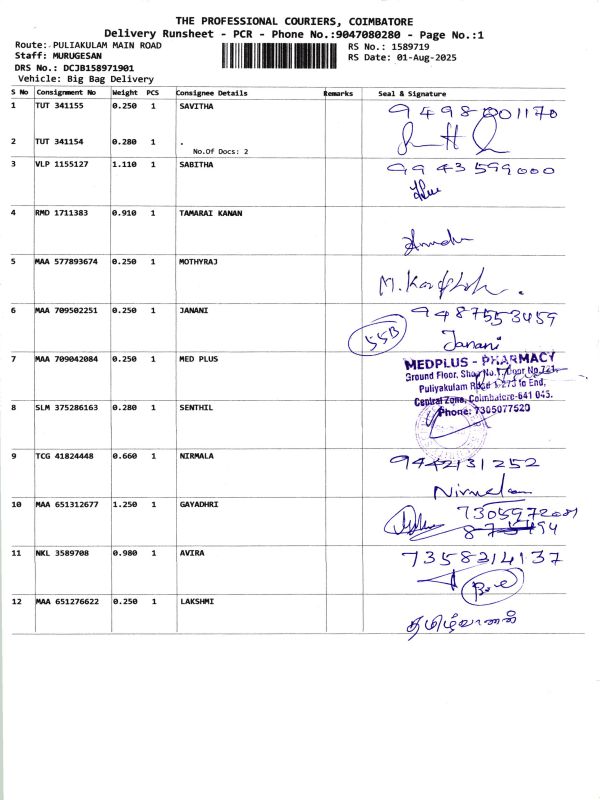 THE PROFESSIONAL COURIERS, COIMBATORE
Delivery Runsheet - PCR - Phone No.:9047080280 - Page No.:1
Route: PULIAKULAM MAIN ROAD
RS No.: 1589719
Staff: MURUGESAN
RS Date: 01-Aug-2025
DRS No.: DCJB158971901
Vehicle: Big Bag Delivery
S No Consignment No Weight PCS Consignee Details Remarks Seal & Signature
1 TUT 341155 0.250 1 SAVITHA
2 TUT 341154 0.280 1 .
No.Of Docs: 2
3 VLP 1155127 1.110 1 SABITHA 9943599000
4 RMD 1711383 0.910 1 TAMARAI KANAN
5 MAA 577893674 0.250 1 MOTHYRAJ
6 MAA 709502251 0.250 1 JANANI 9487553459
55B
Janani
7 MAA 709042084 0.250 1 MED PLUS
MEDPLUS - PHARMACY
Ground Floor, Shop No.1, Door No.
Puliyakulam Road to End,
Central Zone, Coimbatore-641 045.
Phone: 7305077520
8 SLM 375286163 0.280 1 SENTHIL
9 TCG 41824448 0.660 1 NIRMALA 9442131252
10 MAA 651312677 1.250 1 GAYADHRI
11 NKL 3589708 0.980 1 AVIRA 7358314137
12 MAA 651276622 0.250 1 LAKSHMI